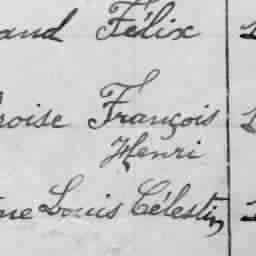 and Félix
roise François
Henri
ne Louis Célestin